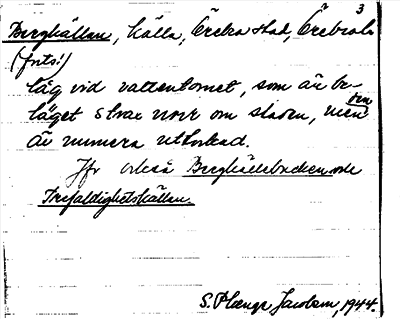 3
Bergkällan, källa, Örebro stad, Örebro län
(forts.)
låg vid vattentornet, som är be-
läget strax norr om staden, men den
är numera uttorkad.
Jfr också Bergkällebacken och
Trefaldighetskällan.
S. Plænge Jacobson, 1944.